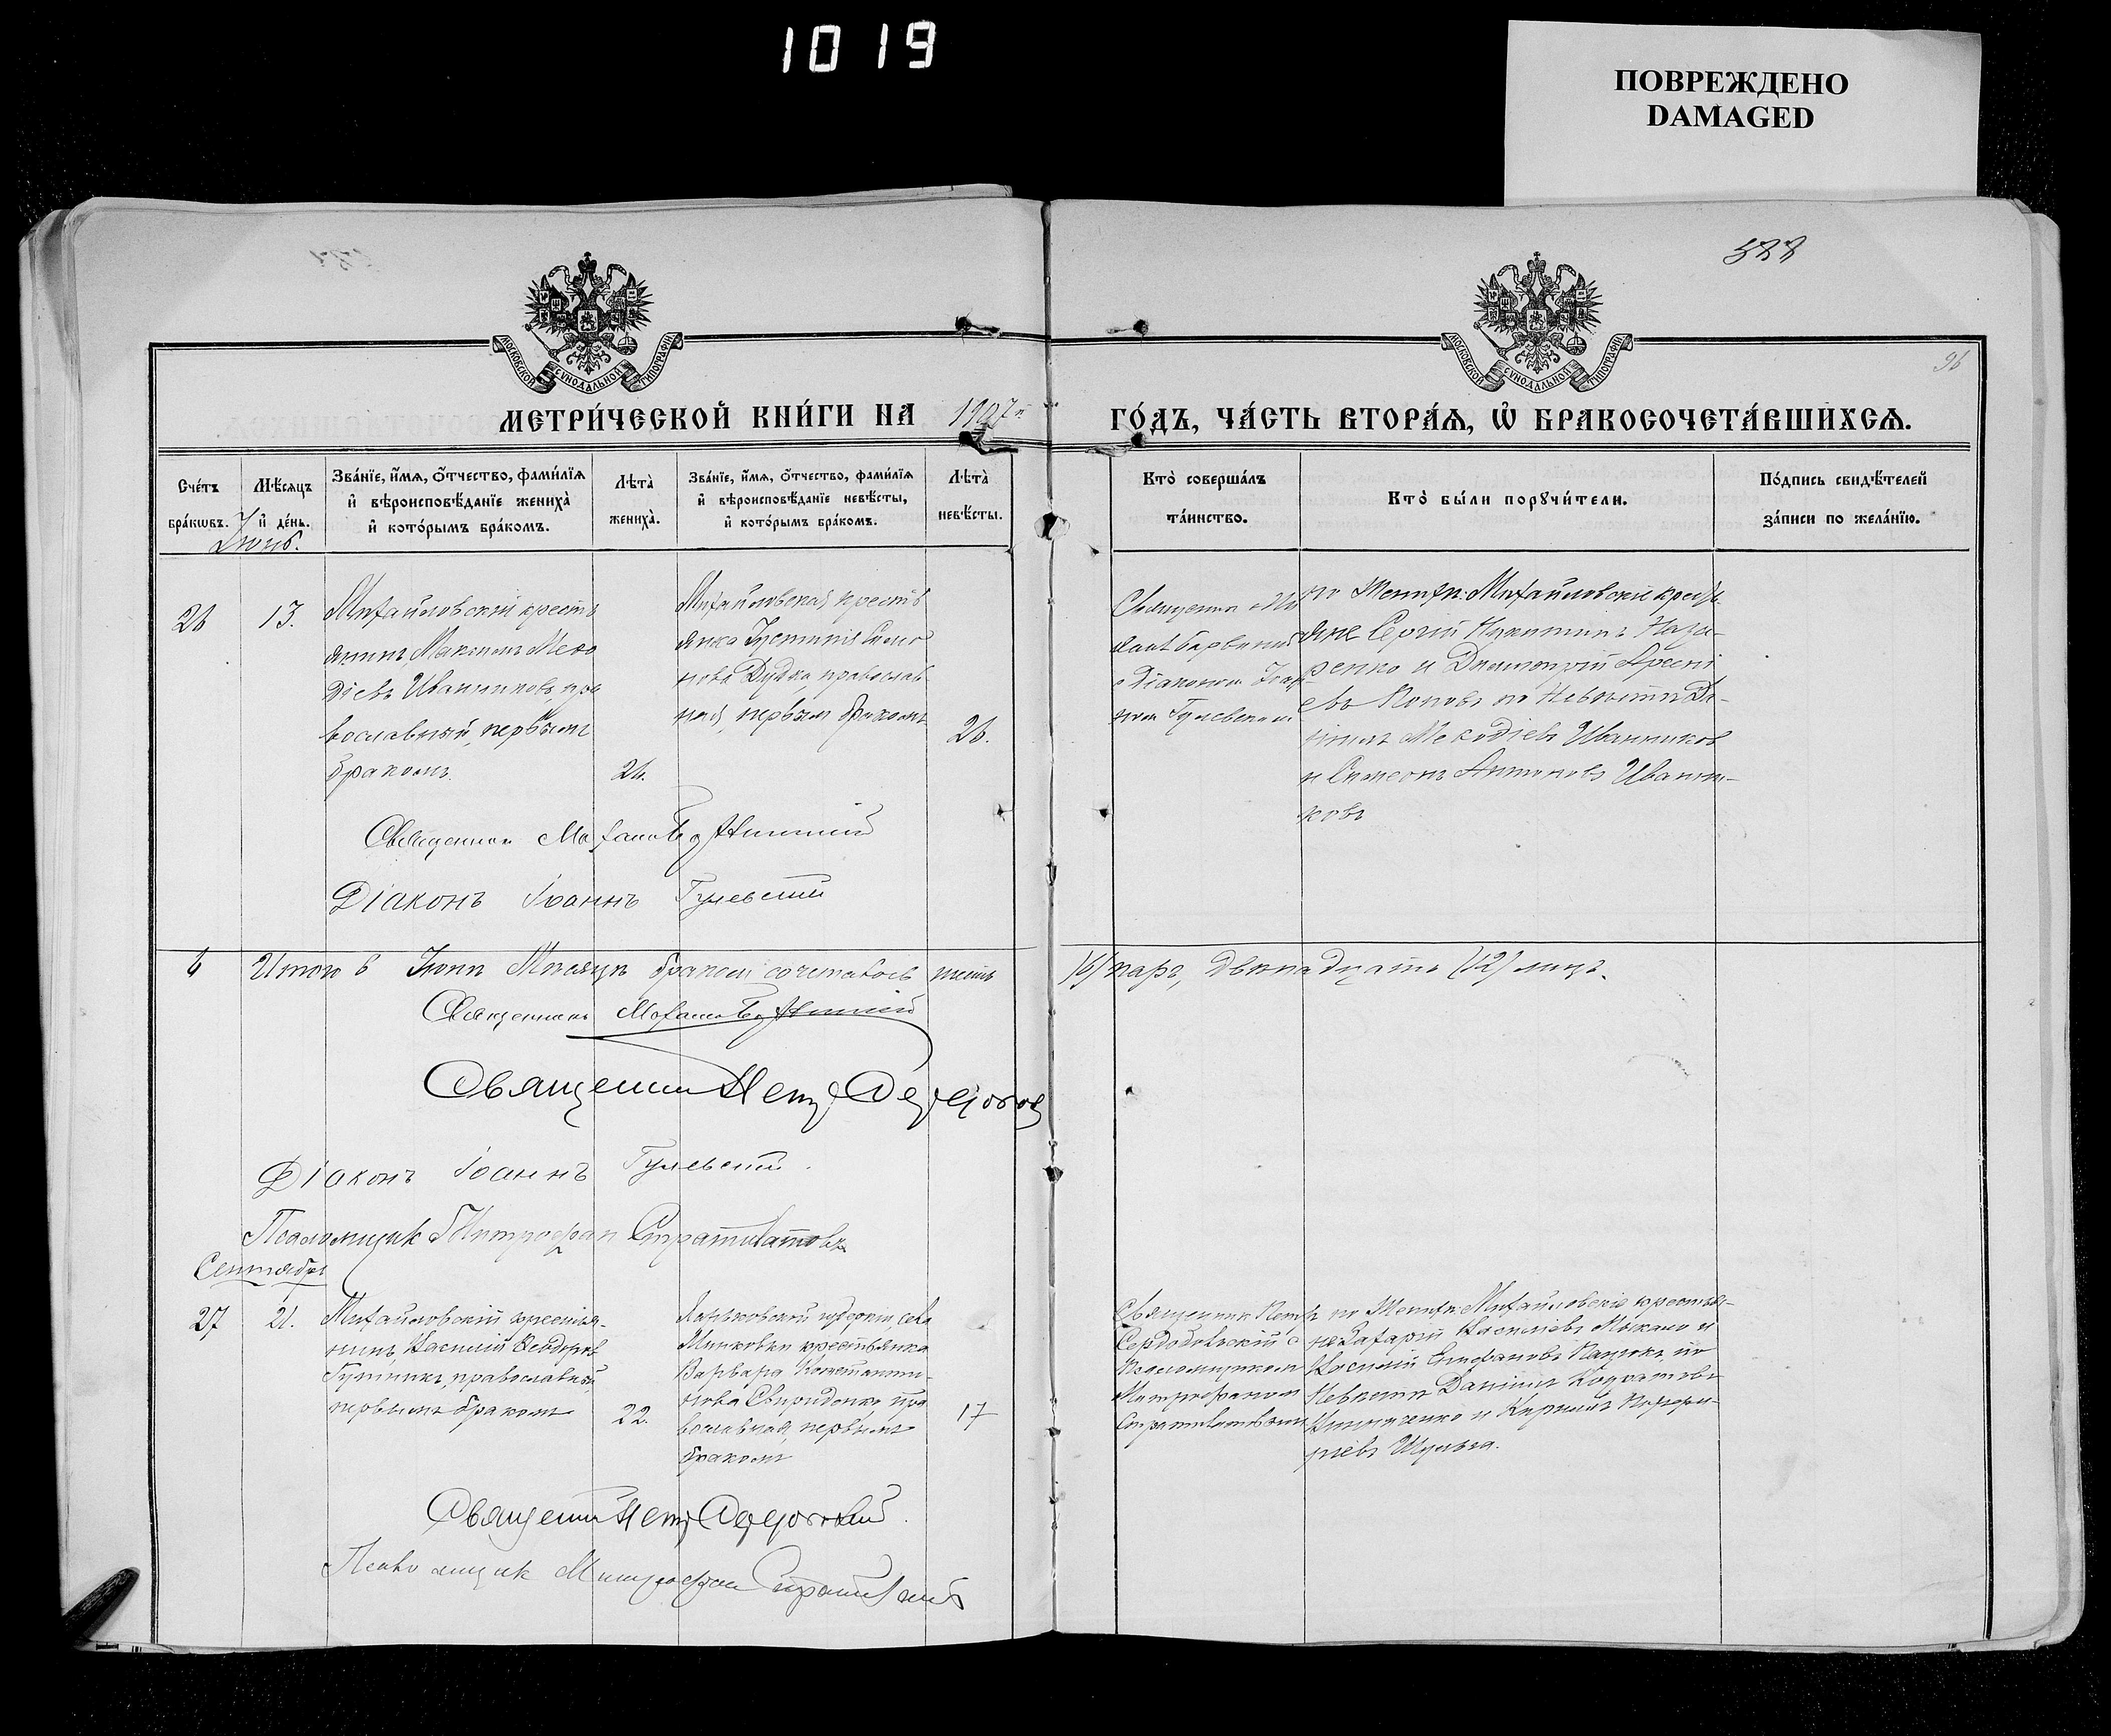 1019
ПОВРЕЖДЕНО
DAMAGED
588
МОСКОВСКОЙ СУНОДАЛЬНОЙ ТИПОГРАФІИ
МОСКОВСКОЙ СУНОДАЛЬНОЙ ТИПОГРАФІИ
96
МЕТРИ́ЧЕСКОЙ КНИ́ГИ НА 1907й
ГО́ДЪ, ЧА́СТЬ ВТОРА́Ѧ, Ѡ҆ БРАКОСОЧЕТА́ВШИХСѦ.
Сче́тъ бра́кωвъ.
Мѣ́сяцъ и҆ де́нь.
Зва́нїе, и҆́мѧ, ѻ҆́тчество, фами́лїѧ
и҆ вѣроисповѣ́данїе жениха̀
и҆ кото́рымъ бра́комъ.
Лѣта̀ жениха̀.
Зва́нїе, и҆́мѧ, ѻ҆́тчество, фами́лїѧ
и҆ вѣроисповѣ́данїе невѣ́сты,
и҆ кото́рымъ бра́комъ.
Лѣта̀ невѣ́сты.
Кто̀ соверша́лъ та́инство.
Кто̀ бы́ли порꙋчи́тели.
По́дпись свидѣ́телей за́писи по жела́нїю.
Іюнь.
26
13.
Михайловскій кресть
янинъ Максимъ Меѳо
діевъ Иванниковъ, пра
вославный, первымъ
бракомъ.
26.
Михайловская кресть
янка Іустинія Симо
нова Дудка, православ
ная, первымъ бракомъ
26.
Священник
с Діакономъ Іоан
номъ Гулевскимъ
по Женихѣ: Михайловскіе кресть
яне Сергій Никитинъ Наза-
ренко и Димитрій Арсені
евъ Поповъ по Невѣстѣ Да-
ніилъ Меѳодіевъ Иванников
и Симеонъ Антоновъ Иванни-
ковъ
Священник
Діаконъ Іоаннъ Гулевскій
6
Итого в Іюнѣ Мѣсяцѣ бракомъ сочеталось шесть
(6) паръ, двенадцать (12) лицъ.
Священникъ
Священник Петр
Діаконъ Іоаннъ Гулевскій.
Псаломщик Митрофан Стратилатовъ
Сентябрь
27
21.
Михайловскій крестья-
нинъ, Василій Ѳеодоровъ
Гутникъ, православный,
первымъ бракомъ
22.
Харьковской губерніи, села
Минковки крестьянка
Варвара Константи-
нова Свириденко, пра
вославная, первымъ
бракомъ
17
Священник Петръ
Сердобольскій с
Псаломщиком
Митрофаномъ
Стратилатовымъ
по Женихѣ: Михайловскіе крестья-
не Захарій Василіевъ Мокано и
Василій Епифановъ Пацюкъ, по
Невѣстѣ Даніилъ Кодратовъ
и Кириллъ Порфи-
ріевъ Шульга.
Священник Петр Сердобольскій.
Псаломщик Митрофан Стратилатовъ